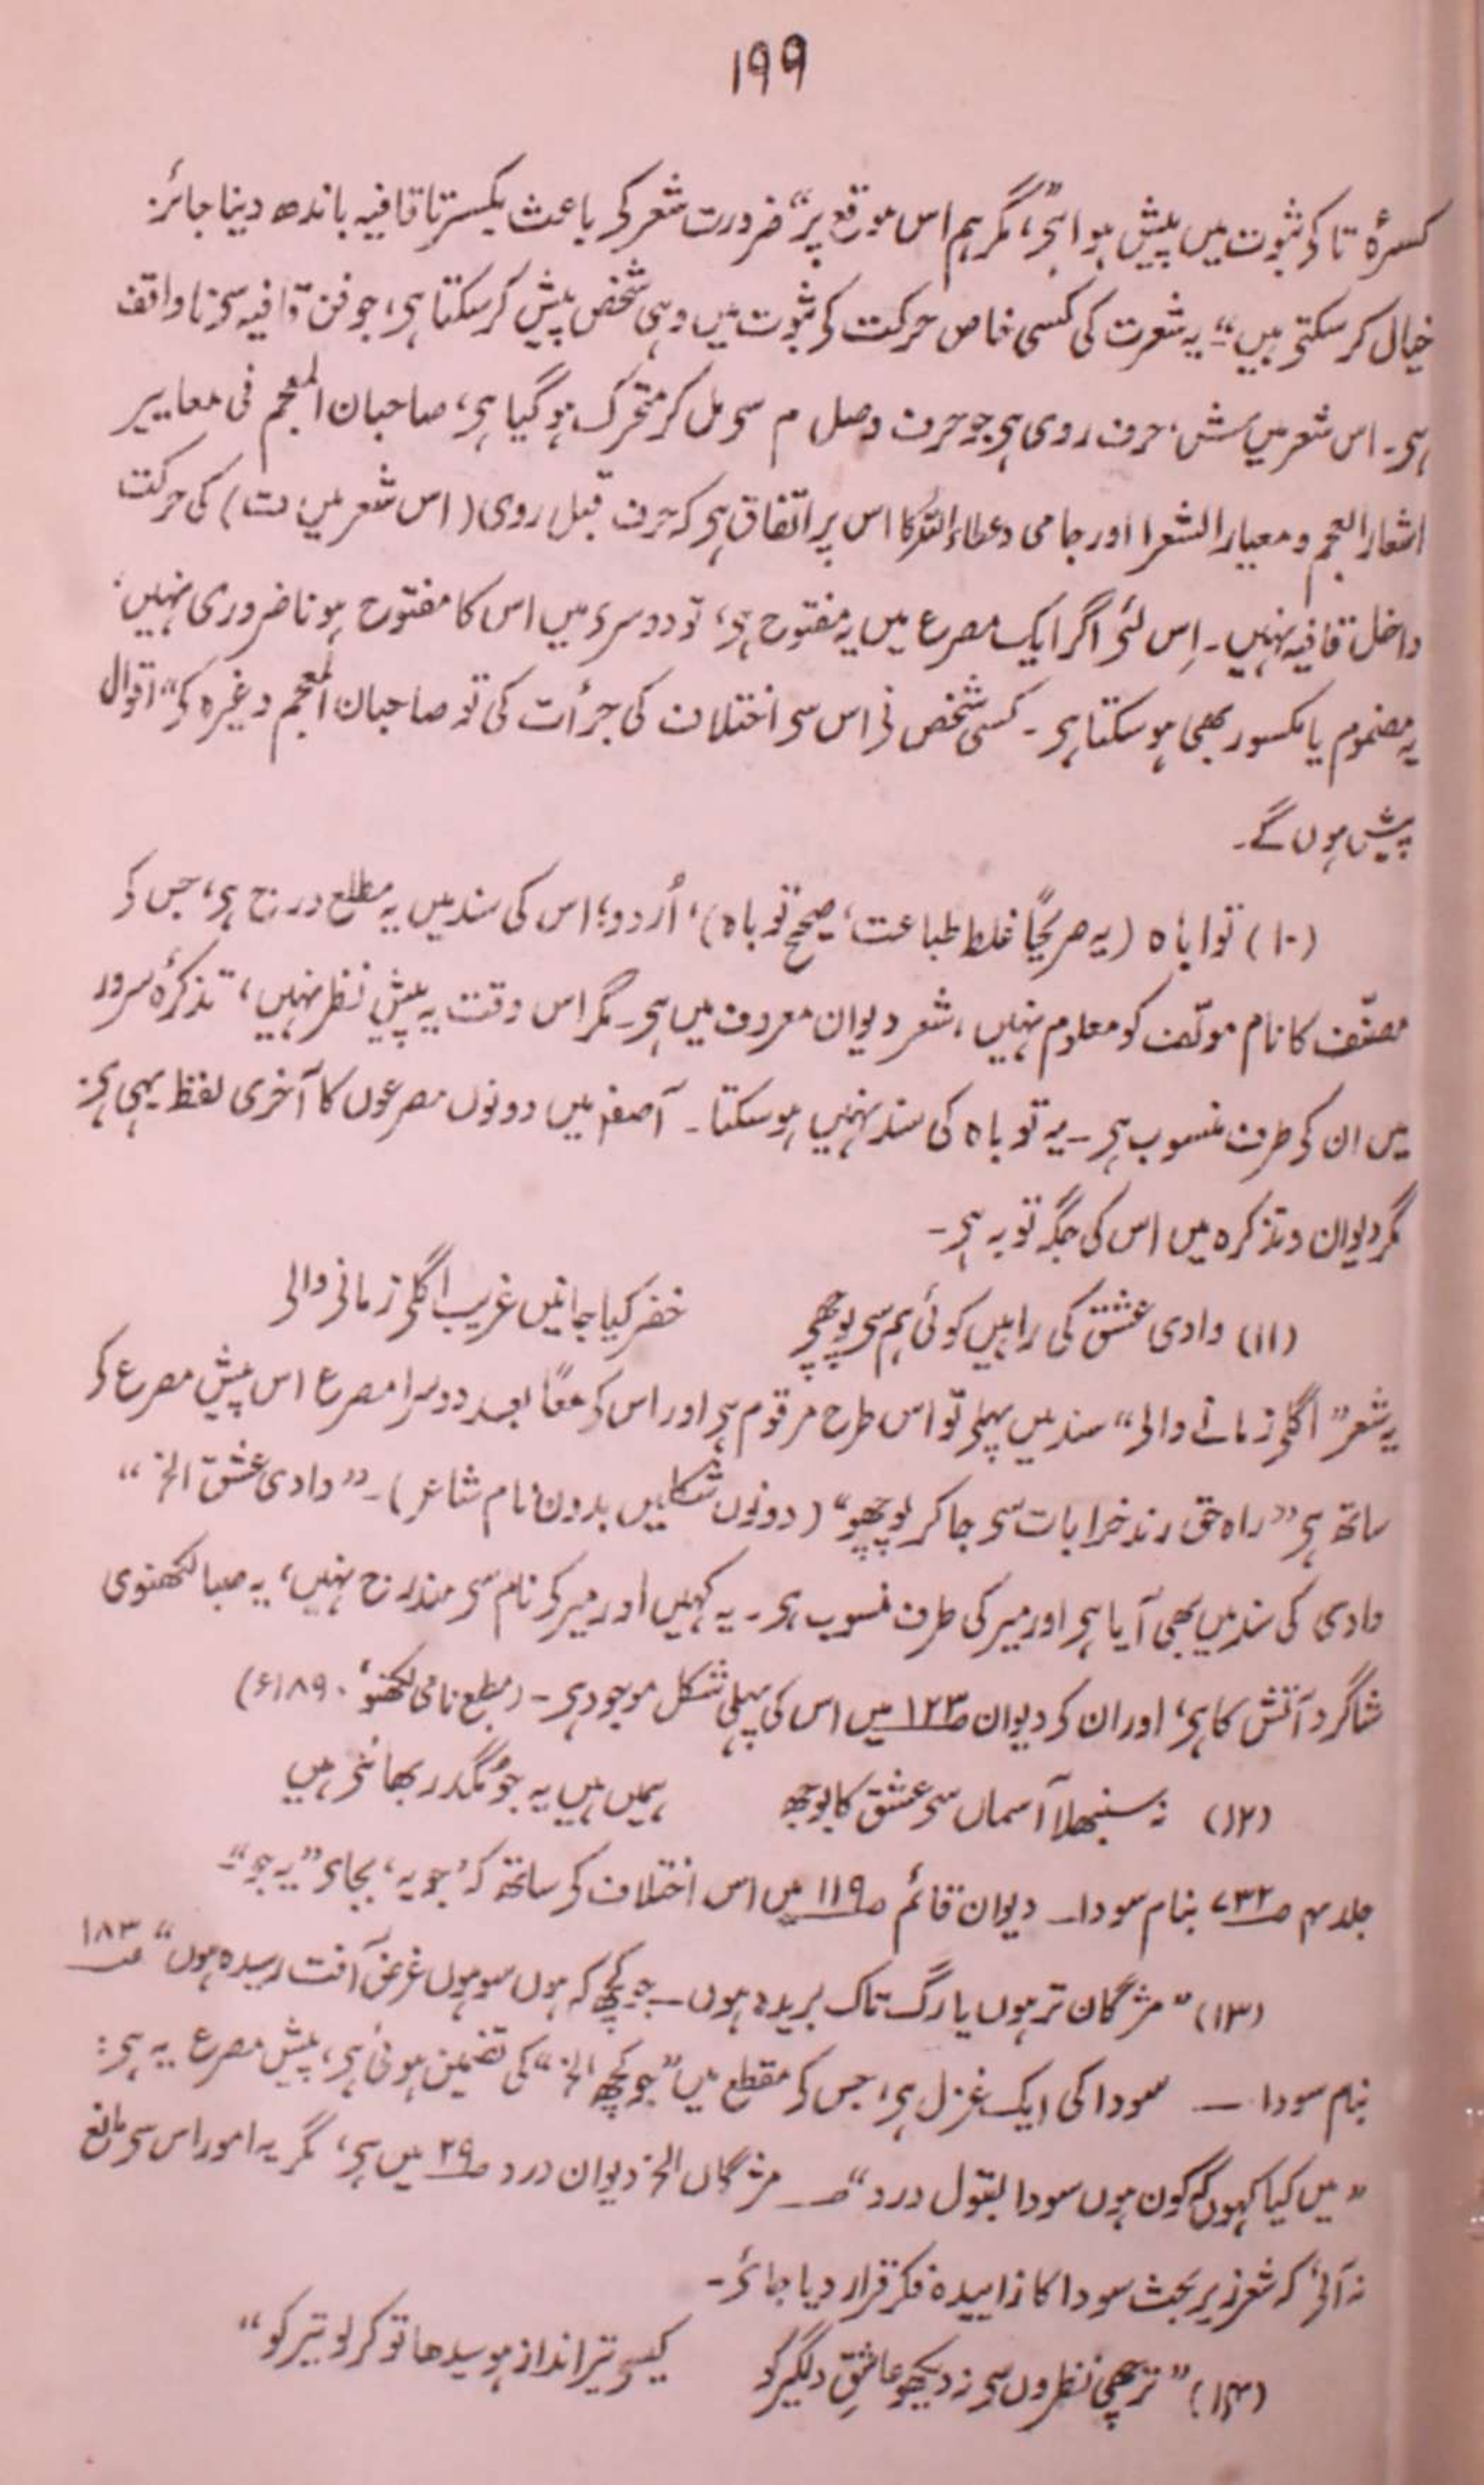 ۱۹۹
کسرۂ تا کو ثبوت میں پیش ہوا ہَی، مگر ہم اس موقع پر “ضرورت شعر کَی باعث بکسرتا قافیہ باندھ دینا جائز
خیال کرسکتَی ہیں“ یہ شعرت کی کسی خاص حرکت کَی ثبوت میں وہی شخص پیش کرسکتا ہَی، جو فن قافیہ سَی ناواقف
ہَی۔ اس شعر میں ش، حرف روی ہَی جو حرف وصل م سَی مل کر متحرک ہوگیا ہَی، صاحبان المعجم فی معاییر
اشعار العجم و معیار الشعرا اور جامی و عطاء اللہ کا اس پر اتفاق ہَی کہ حرف قبل روی (اس شعر میں ت) کی حرکت
داخل قافیہ نہیں۔ اِس لئَی اگر ایک مصرع میں یہ مفتوح ہَی، تو دوسرَی میں اس کا مفتوح ہونا ضروری نہیں،
یہ مضموم یا مکسور بھی ہوسکتا ہَی۔ کسی شخص نَی اس سَی اختلاف کی جرأت کی تو صاحبان المعجم وغیرہ کَی “اقوال
پیش ہوں گے۔
(۱۰) توابأہ (یہ صریحًا غلط طباعت، صحیح توباہ)، اُردو؛ اس کی سند میں یہ مطلع درج ہَی، جس کَی
مصنّف کا نام مولّف کو معلوم نہیں، شعر دیوان معروف میں ہَی۔ مگر اس وقت یہ پیش نظر نہیں، تذکرۂ سرور
میں ان کَی طرف منسوب ہَی۔ یہ توباہ کی سند نہیں ہوسکتا۔ آصفہ میں دونوں مصرعوں کا آخری لفظ یہی ہَی،
مگر دیوان و تذکرہ میں اس کی جگہ توبہ ہَی۔
(۱۱) وادی عشق کی راہیں کوئی ہم سَی پوچھَی خضر کیا جانیں غریب اگلَی زمانَی والَی
یہ شعر “اگلَی زمانے والَی“ سند میں پہلَی تو اس طرح مرقوم ہَی اور اس کَی معًا بعد دوسرا مصرع اس پیش مصرع کَی
ساتھ ہَی “راہ حق رند خرابات سَی جا کر پوچھو“ (دونوں شکلیں بدون نام شاعر)۔ “وادی عشق الخ“
وادی کی سند میں بھی آیا ہَی اور میر کی طرف منسوب ہَی۔ یہ کہیں اور میر کَی نام سَی مندرج نہیں، یہ صبا لکھنوی
شاگرد آتش کا ہَی، اور ان کَی دیوان ص۱۲۳ میں اس کی پہلی شکل موجود ہَی۔ (مطبع نامی لکھنؤ، ۱۸۹۰ء)
(۱۲) نہ سنبھلا آسماں سَی عشق کا بوجھ ہمیں ہیں یہ جو مُگدر بھانتَی ہیں
جلد ۴ ص۷۳۲ بنام سودا۔ دیوان قائم ص۱۱۹ میں اس اختلاف کَی ساتھ کہ ’جو یہ‘ بجاَی “یہ جو“۔
(۱۳) “مژگان تر ہوں یا رگ تاک بریدہ ہوں — جو کچھ کہ ہوں سو ہوں غرض آفت رسیدہ ہوں“ ص۱۸۳
بنام سودا — سودا کی ایک غزل ہَی، جس کَی مقطع میں “جو کچھ الخ“ کی تضمین ہوئی ہَی، پیش مصرع یہ ہَی:
“میں کیا کہوں کہ کون ہوں سودا بقول درد“ — مژگاں الخ دیوان درد ص۲۹ میں ہَی، مگر یہ امور اس سَی مانع
نہ آئَی کہ شعر زیر بحث سودا کا زاییدہ فکر قرار دیا جائَی۔
(۱۴) “ترچھی نظروں سَی نہ دیکھو عاشقِ دلگیر کو کیسَی تیر انداز ہو سیدھا تو کر لو تیر کو“